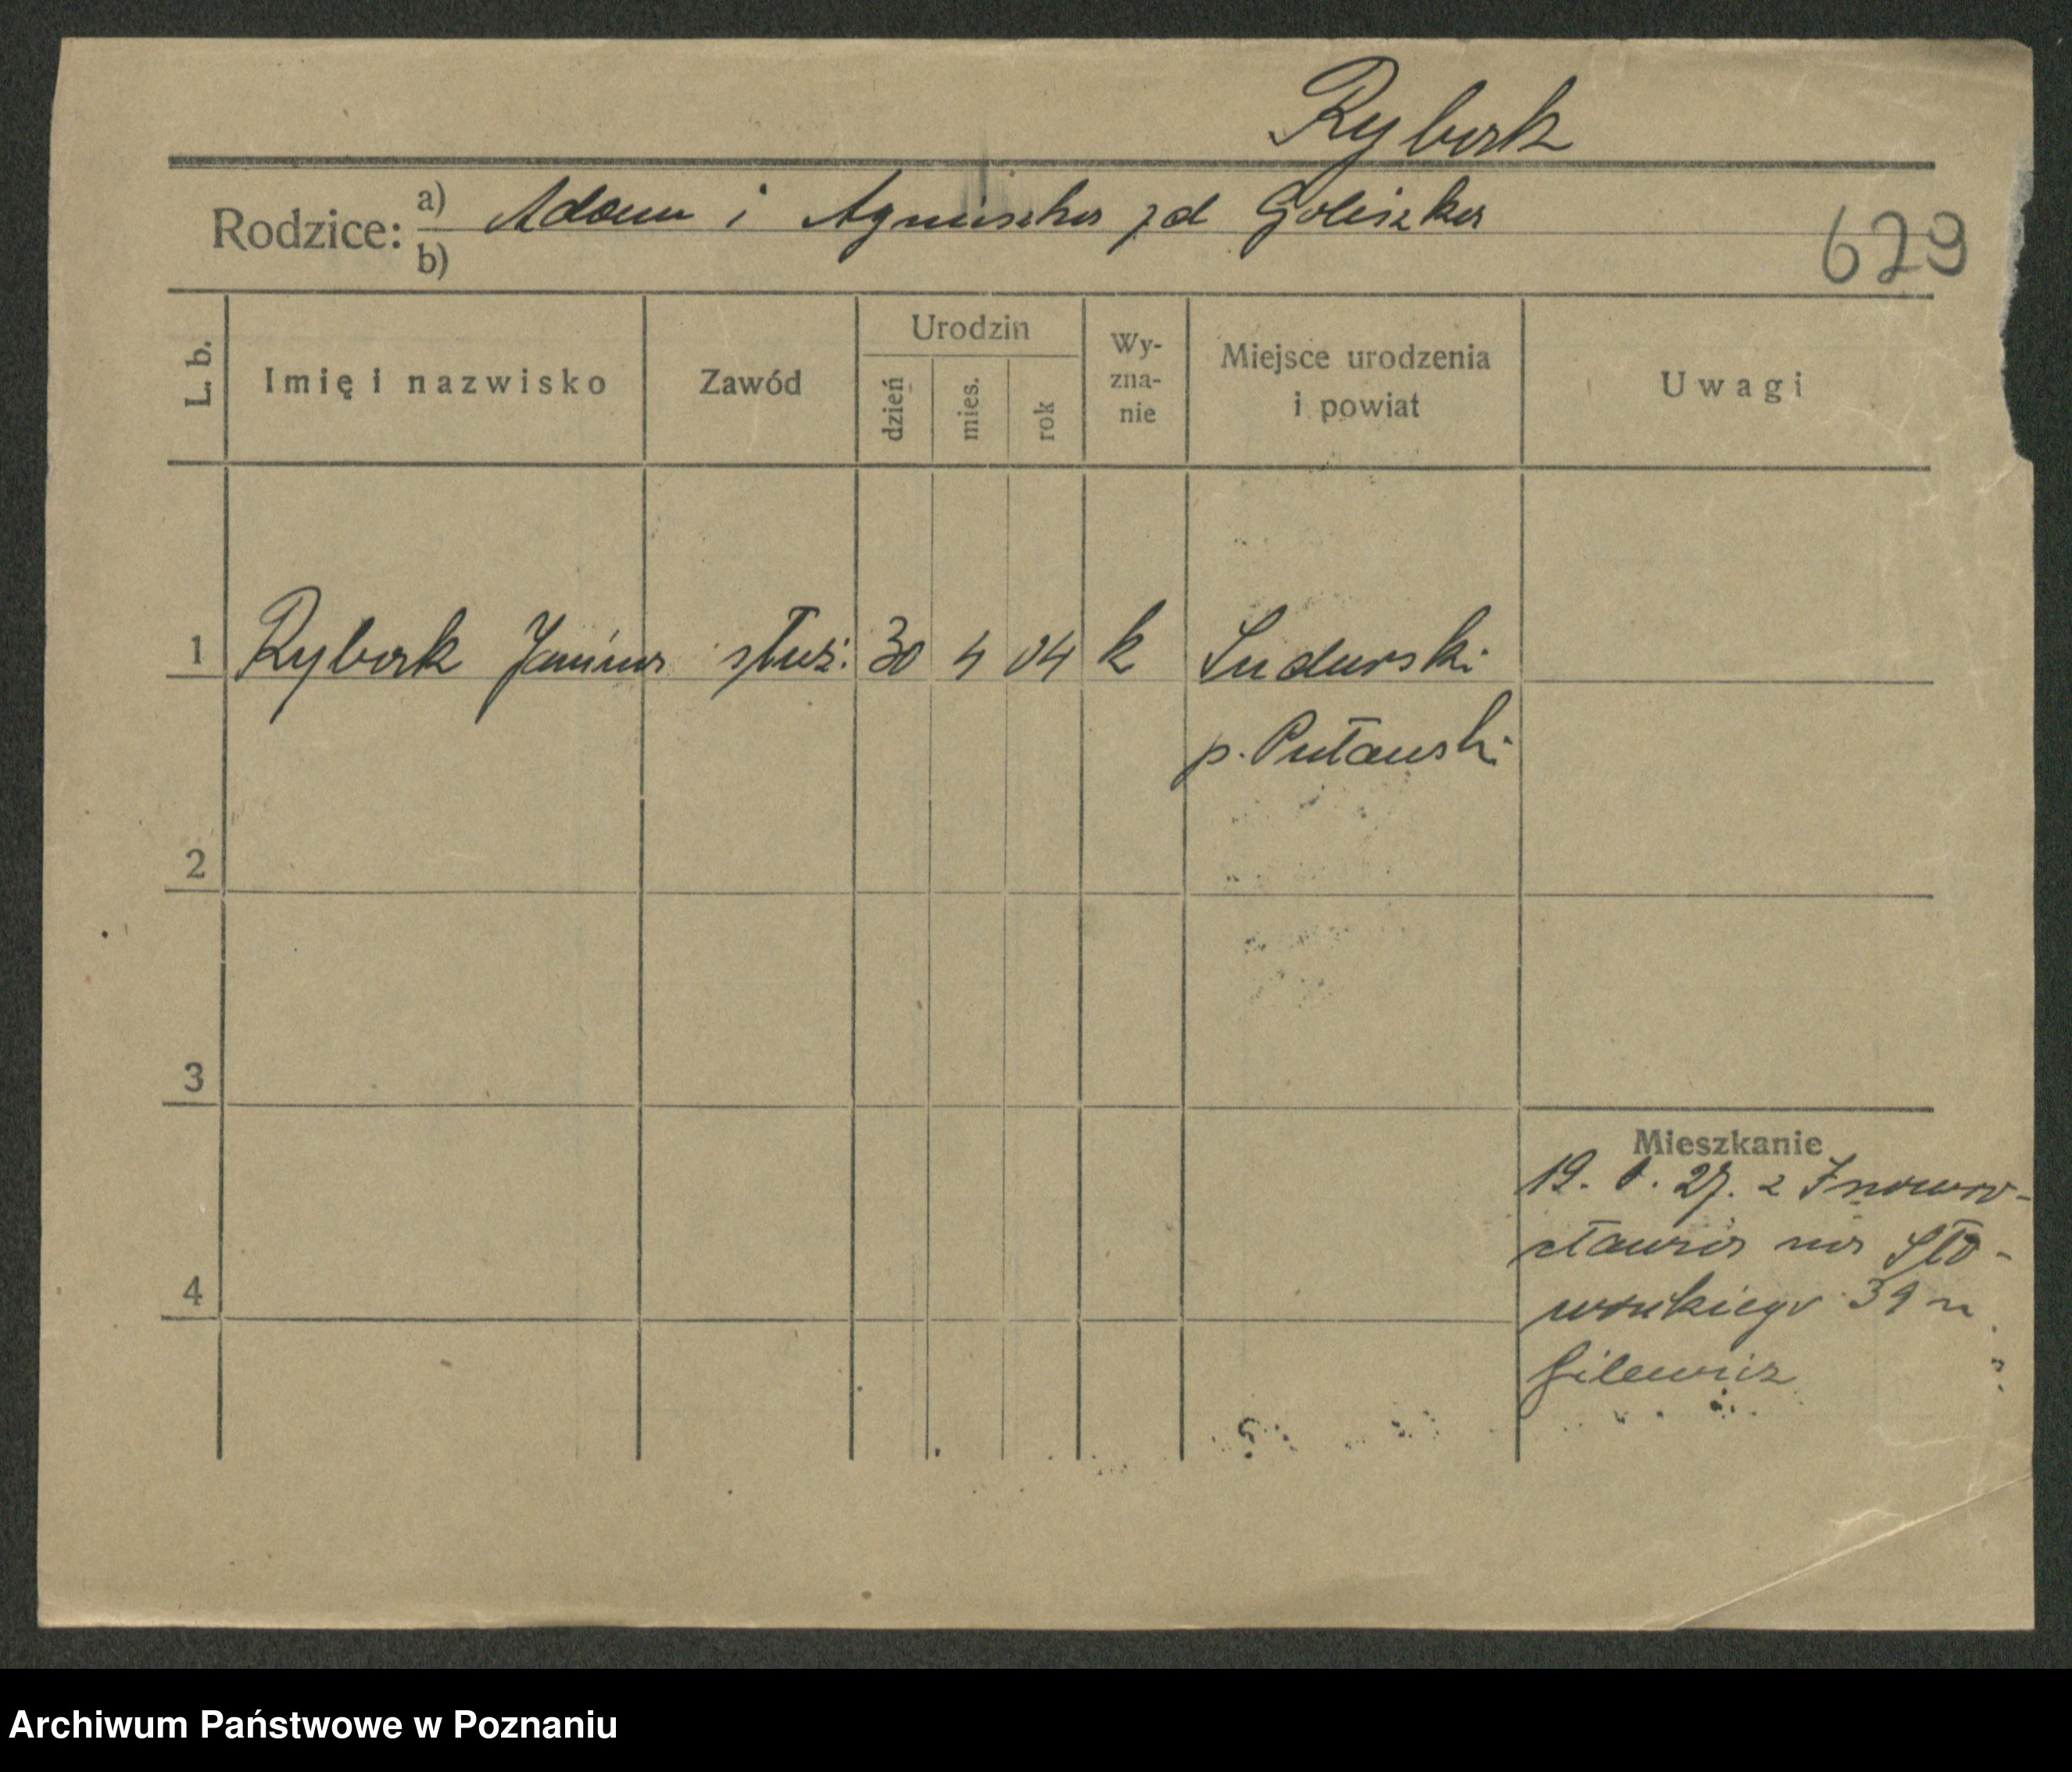 Rybak
Rodzice: a) Adam i Agnieszka zd Goliszka
b)
629
L. b.
Imię i nazwisko
Zawód
Urodzin
dzień
mies.
rok
Wy-
zna-
nie
Miejsce urodzenia
i powiat
Uwagi
1 Rybak Janina służ. 30 4 04 k
p. Puławski
2
3
4
Mieszkanie
19. 27. z Inowro-
cławia na Sło-
wackiego 39 u
Gilewicz
Archiwum Państwowe w Poznaniu